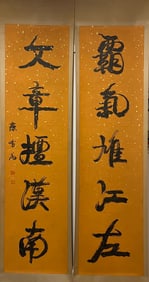 霸氣雄江左
文章擅漢南